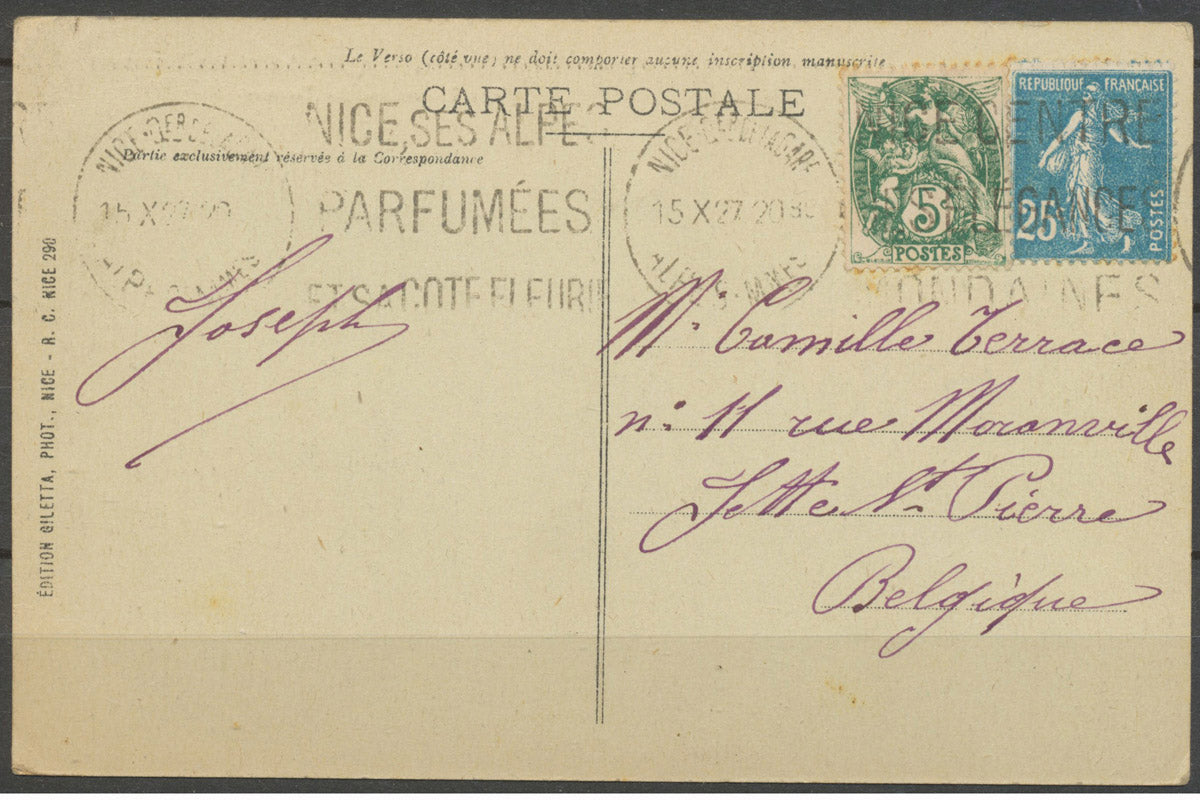 Le Verso (côté vue) ne doit comporter aucune inscription manuscrite
CARTE POSTALE
Partie exclusivement réservée à la Correspondance
NICE
15 X 27 20
NICE, SES ALPES
PARFUMÉES
ET SA COTE FLEURIE
NICE
15 X 27 20 30
ALPES-MMES
5
POSTES
RÉPUBLIQUE FRANÇAISE
25
POSTES
CENTRE
ÉLÉGANCES
MONDAINES
ÉDITION GILETTA, PHOT., NICE - R. C. NICE 290
Joseph
Mr Camille Terrace
n° 11 rue Moranville
Jette St Pierre
Belgique